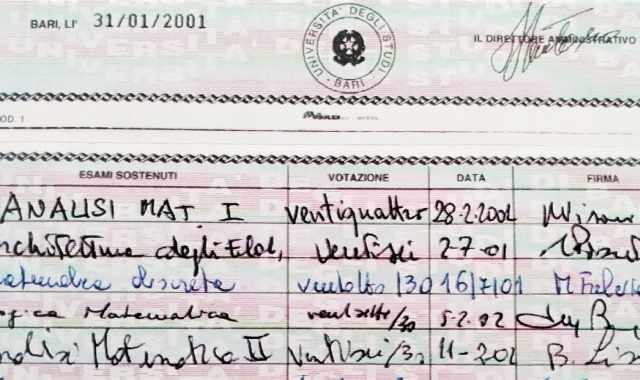 BARI, LI' 31/01/2001
UNIVERSITA' DEGLI STUDI BARI
IL DIRETTORE AMMINISTRATIVO
OD. 1
ESAMI SOSTENUTI VOTAZIONE DATA FIRMA
ANALISI MAT. I ventiquattro 28-2-2001
rchitettura degli Elab, ventisei 2-7-01
matematica discreta ventotto /30 16/7/01
ogica Matematica ventisette/30 5-2-02
nalisi Matematica II ventisei/30 11-2-02 B.